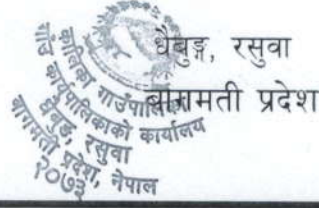 धैबुङ्ग, रसुवा
बागमती प्रदेश
कालिका गाउँपालिका
गाउँ कार्यपालिकाको कार्यालय
धैबुङ, रसुवा
बागमती प्रदेश, नेपाल
२०७३